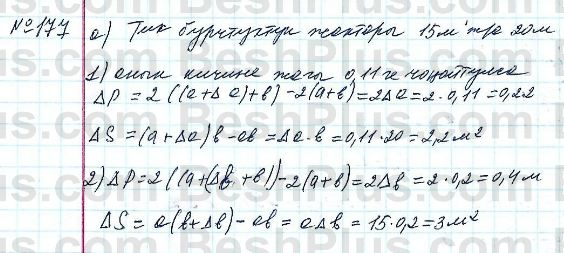 №177 а) Тик бурчтуктун жактары 15м жа 20м
1) анын кичине жагы 0,11ге чоңойтулса
ΔP = 2((a+Δa)+b)-2(a+b)=2Δa=2·0,11=0,22
ΔS=(a+Δa)b-ab=Δa·b=0,11·20=2,2м²
2) ΔP=2((a+(Δb+b))-2(a+b)=2Δb=2·0,2=0,4м
ΔS=a(b+Δb)-ab=aΔb=15·0,2=3м²
BeshPlus.com